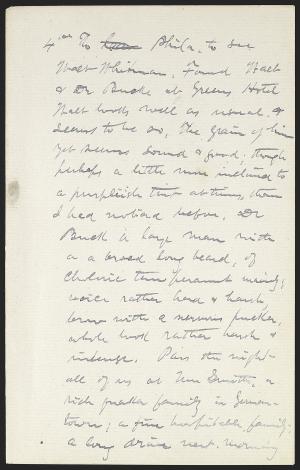 4th To Phila. to see
Walt Whitman. Found Walt
& Dr Bucke at Greens Hotel
Walt looks well as usual &
seems to be so. The grain of him
yet seems sound & good; though
perhaps a little more inclined to
a purplish tint at times, than
I had noticed before. Dr
Buck is large man with
a broad long beard, of
choleric temperament mainly;
voice rather hard & harsh
brow with a nervous pucker,
whole look rather harsh &
intense. Pass the night
all of us at Mr Smith's, a
rich quaker family in German-
town; a fine hospitable family.
a long drive next morning